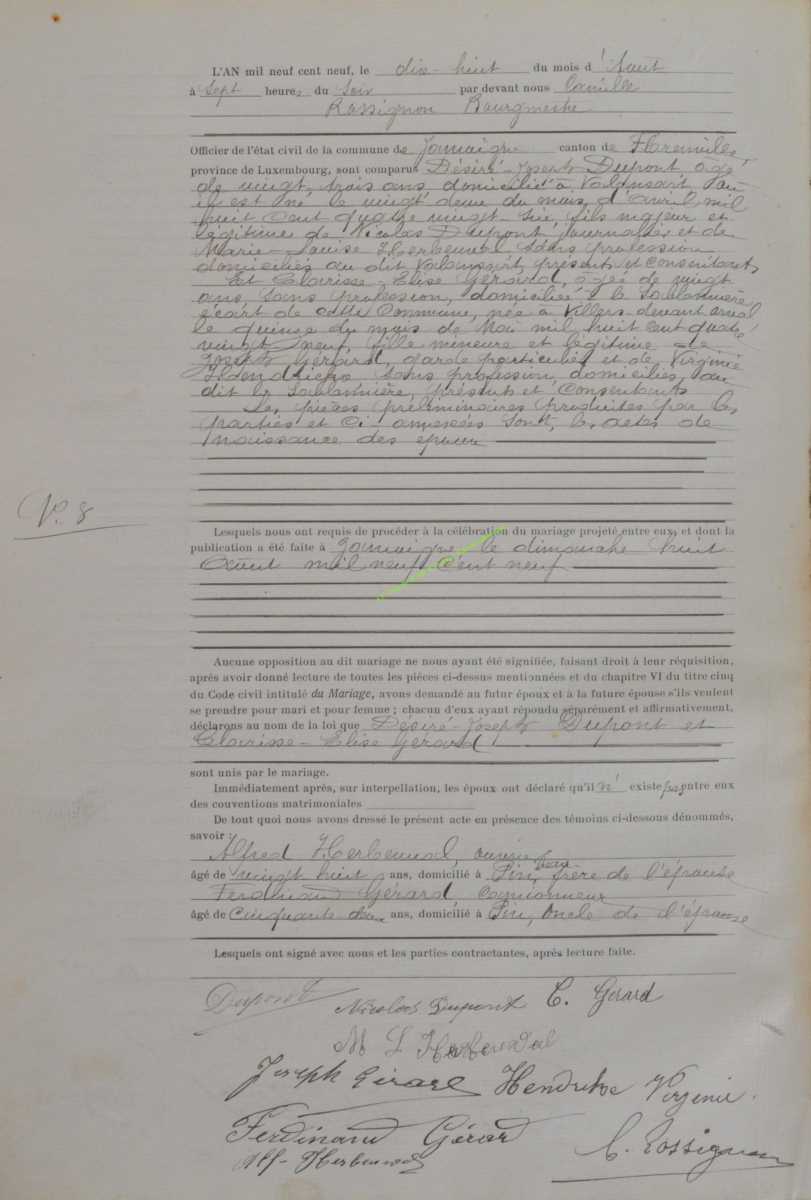 L'AN mil neuf cent neuf, le dix-huit du mois d'Aout
à sept heures du soir par devant nous Camille
Rossignon Bourgmestre
Officier de l'état civil de la commune de Jamoigne canton de Florenville,
province de Luxembourg, sont comparus Désiré-Joseph Dupont, âgé
de vingt trois ans domicilié à Valansart, où
il est né le vingt deux du mois d'avril mil
huit cent quatre vingt-six, fils majeur et
légitime de Nicolas Dupont, journalier et de
Marie-Louise Herbeuval sans profession
domiciliés au dit Valansart, présents et consentants
Et Clarisse-Elise Gérard, âgée de vingt
ans, sans profession, domiciliée à la Soblonnière
écart de cette Commune, née à Villers devant orval
le quinze du mois de Mai mil huit cent quatre
vingt neuf, fille mineure et légitime de
Joseph Gérard, garde particulier et de Virginie
Hendrickx sans profession, domiciliés au
dit la Soblonnière, présents et consentants
Les pièces préliminaires produites par les
parties et ci-annexées sont, les actes de
naissance des époux
N°. 8
Lesquels nous ont requis de procéder à la célébration du mariage projeté entre eux, et dont la
publication a été faite à Jamoigne le dimanche huit
Août mil neuf cent neuf
Aucune opposition au dit mariage ne nous ayant été signifiée, faisant droit à leur réquisition,
après avoir donné lecture de toutes les pièces ci-dessus mentionnées et du chapitre VI du titre cinq
du Code civil intitulé du Mariage, avons demandé au futur époux et à la future épouse s'ils veulent
se prendre pour mari et pour femme ; chacun d'eux ayant répondu séparément et affirmativement,
déclarons au nom de la loi que Désiré-Joseph Dupont et
Clarisse-Elise Gérard
sont unis par le mariage.
Immédiatement après, sur interpellation, les époux ont déclaré qu'il n' existe pas entre eux
des conventions matrimoniales
De tout quoi nous avons dressé le présent acte en présence des témoins ci-dessous dénommés,
savoir :
Alfred Herbeuval, ouvrier
âgé de vingt huit ans, domicilié à Pin, beau frère de l'épouse
Ferdinand Gérard Camionneur
âgé de cinquante deux ans, domicilié à Pin, oncle de l'épouse
Lesquels ont signé avec nous et les parties contractantes, après lecture faite.
Dupont Nicolas Dupont C. Gérard
M L Herbeuval
Joseph Gérard Hendrickx Virginie
Ferdinand Gérard
Alf-Herbeuval C. Rossignon